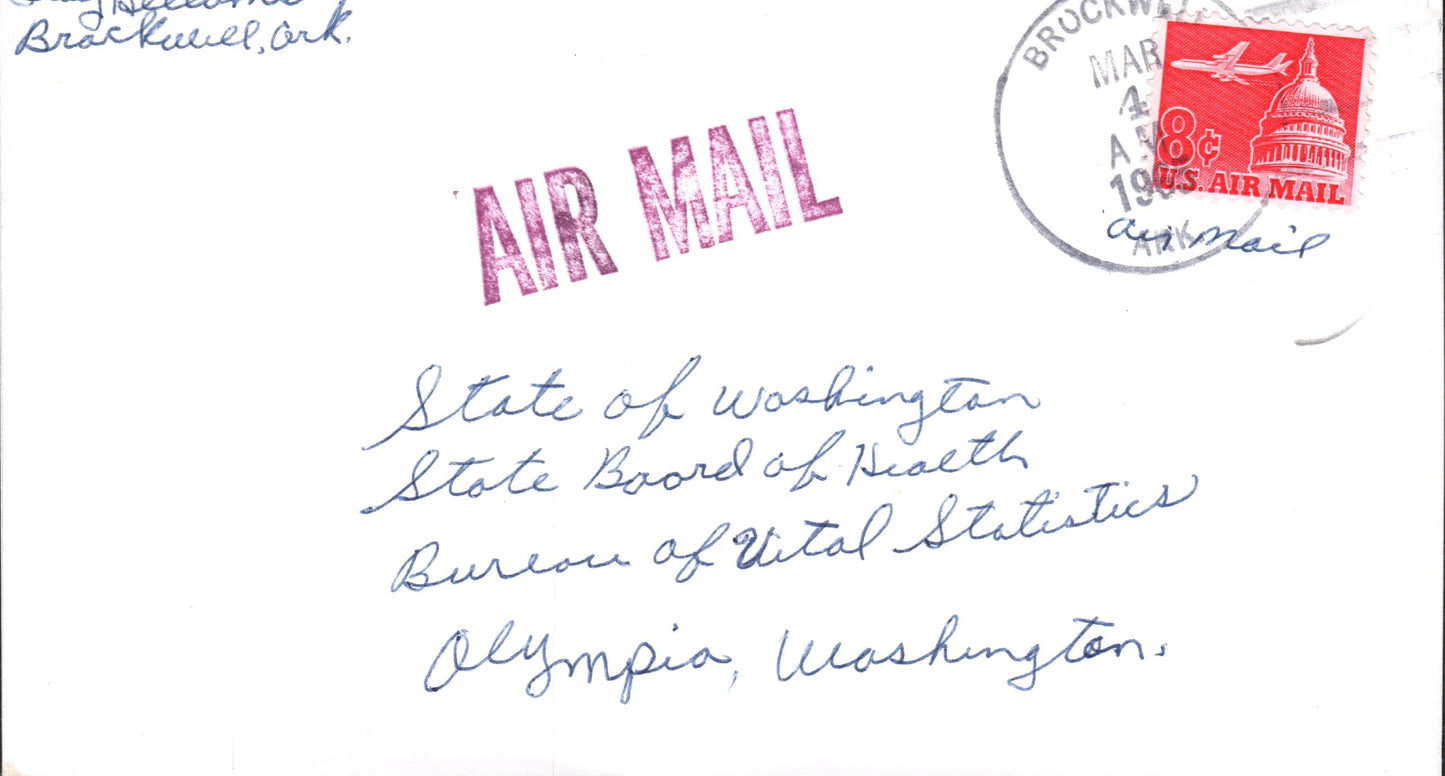 Brockwell, Ark.
BROCKWELL
MAR
4
A.M.
19
ARK
8¢
U.S. AIR MAIL
air mail
AIR MAIL
State of Washington
State Board of Health
Bureau of Vital Statistics
Olympia, Washington.